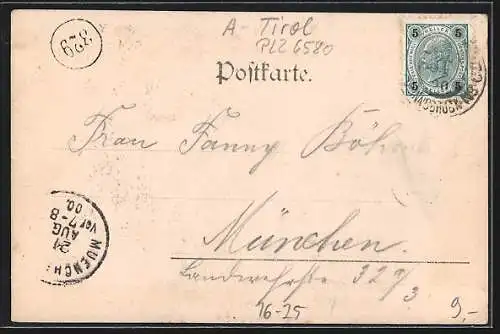 329
A - Tirol
PLZ 6580
Postkarte.
5 5
5 5
Frau Fanny Böh
München.
Landwehrstr. 32 9/3
MUENCH
21
AUG
Vor 7-8
00.
16-25
9,-